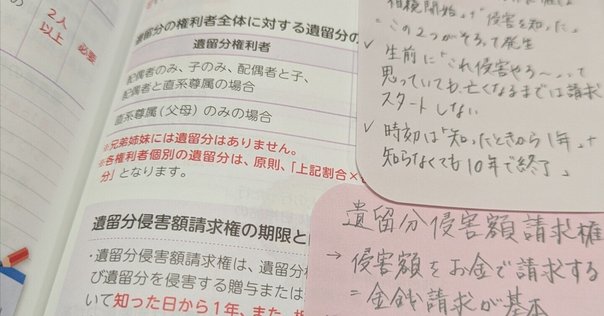 2人
以上
必要
遺留分の権利者全体に対する遺留分の
遺留分権利者
配偶者のみ、子のみ、配偶者と子、
配偶者と直系尊属の場合
直系尊属(父母)のみの場合
※兄弟姉妹には遺留分はありません。
※各権利者個別の遺留分は、原則、「上記割合×
分」となります。
遺留分侵害額請求権の期限と
・遺留分侵害額請求権は、遺留分
び遺留分を侵害する贈与または
いて知った日から1年、また、
相続開始」+「侵害を知った」
この2つがそろって発生
✓ 生前に「これ侵害やろ〜」って
思っていても、亡くなるまでは請求
スタートしない
✓ 時効は「知ったときから1年」+
知らなくても10年で終了。
遺留分侵害額請求権
→ 侵害額をお金で請求する
= 金銭請求が基本